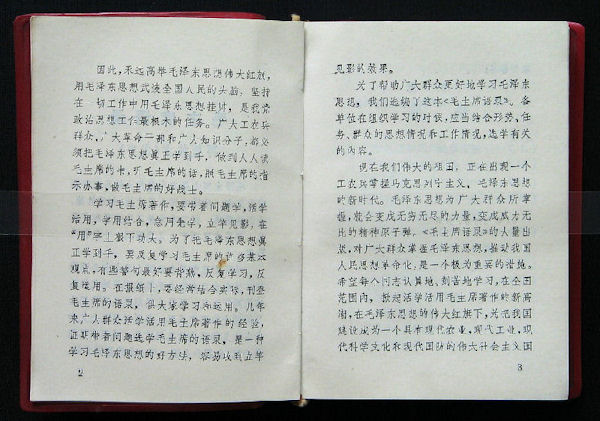 因此，永远高举毛泽东思想伟大红旗，
用毛泽东思想武装全国人民的头脑，坚持
在一切工作中用毛泽东思想挂帅，是我党
政治思想工作最根本的任务。广大工农兵
群众、广大革命干部和广大知识分子，都必
须把毛泽东思想真正学到手，做到人人读
毛主席的书，听毛主席的话，照毛主席的指
示办事，做毛主席的好战士。
学习毛主席著作，要带着问题学，活学
活用，学用结合，急用先学，立竿见影，在
“用”字上狠下功夫。为了把毛泽东思想真
正学到手，要反复学习毛主席的许多基本
观点，有些警句最好要背熟，反复学习，反
复运用。在报纸上，要经常结合实际，刊登
毛主席的语录，供大家学习和运用。几年
来广大群众活学活用毛主席著作的经验，
证明带着问题选学毛主席的语录，是一种
学习毛泽东思想的好方法，容易收到立竿
2
见影的效果。
为了帮助广大群众更好地学习毛泽东
思想，我们选编了这本《毛主席语录》。各
单位在组织学习的时候，应当结合形势、任
务、群众的思想情况和工作情况，选学有关
的内容。
现在我们伟大的祖国，正在出现一个
工农兵掌握马克思列宁主义、毛泽东思想
的新时代。毛泽东思想为广大群众所掌
握，就会变成无穷无尽的力量，变成威力无
比的精神原子弹。《毛主席语录》的大量出
版，对广大群众掌握毛泽东思想，推动我国
人民思想革命化，是一个极为重要的措施。
希望每个同志认真地、刻苦地学习，在全国
范围内，掀起活学活用毛主席著作的新高
潮，在毛泽东思想的伟大红旗下，为把我国
建设成为一个具有现代农业、现代工业、现
代科学文化和现代国防的伟大社会主义国
3